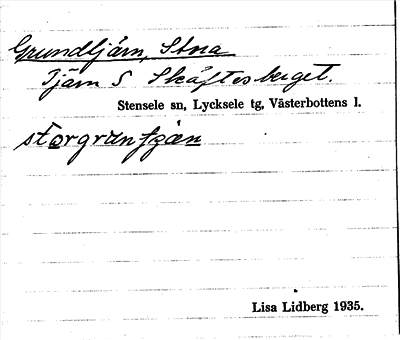 Grundtjärn, Stora
Tjärn S Skåftesberget.
Stensele sn, Lycksele tg, Västerbottens l.
storgruntjæn
Lisa Lidberg 1935.